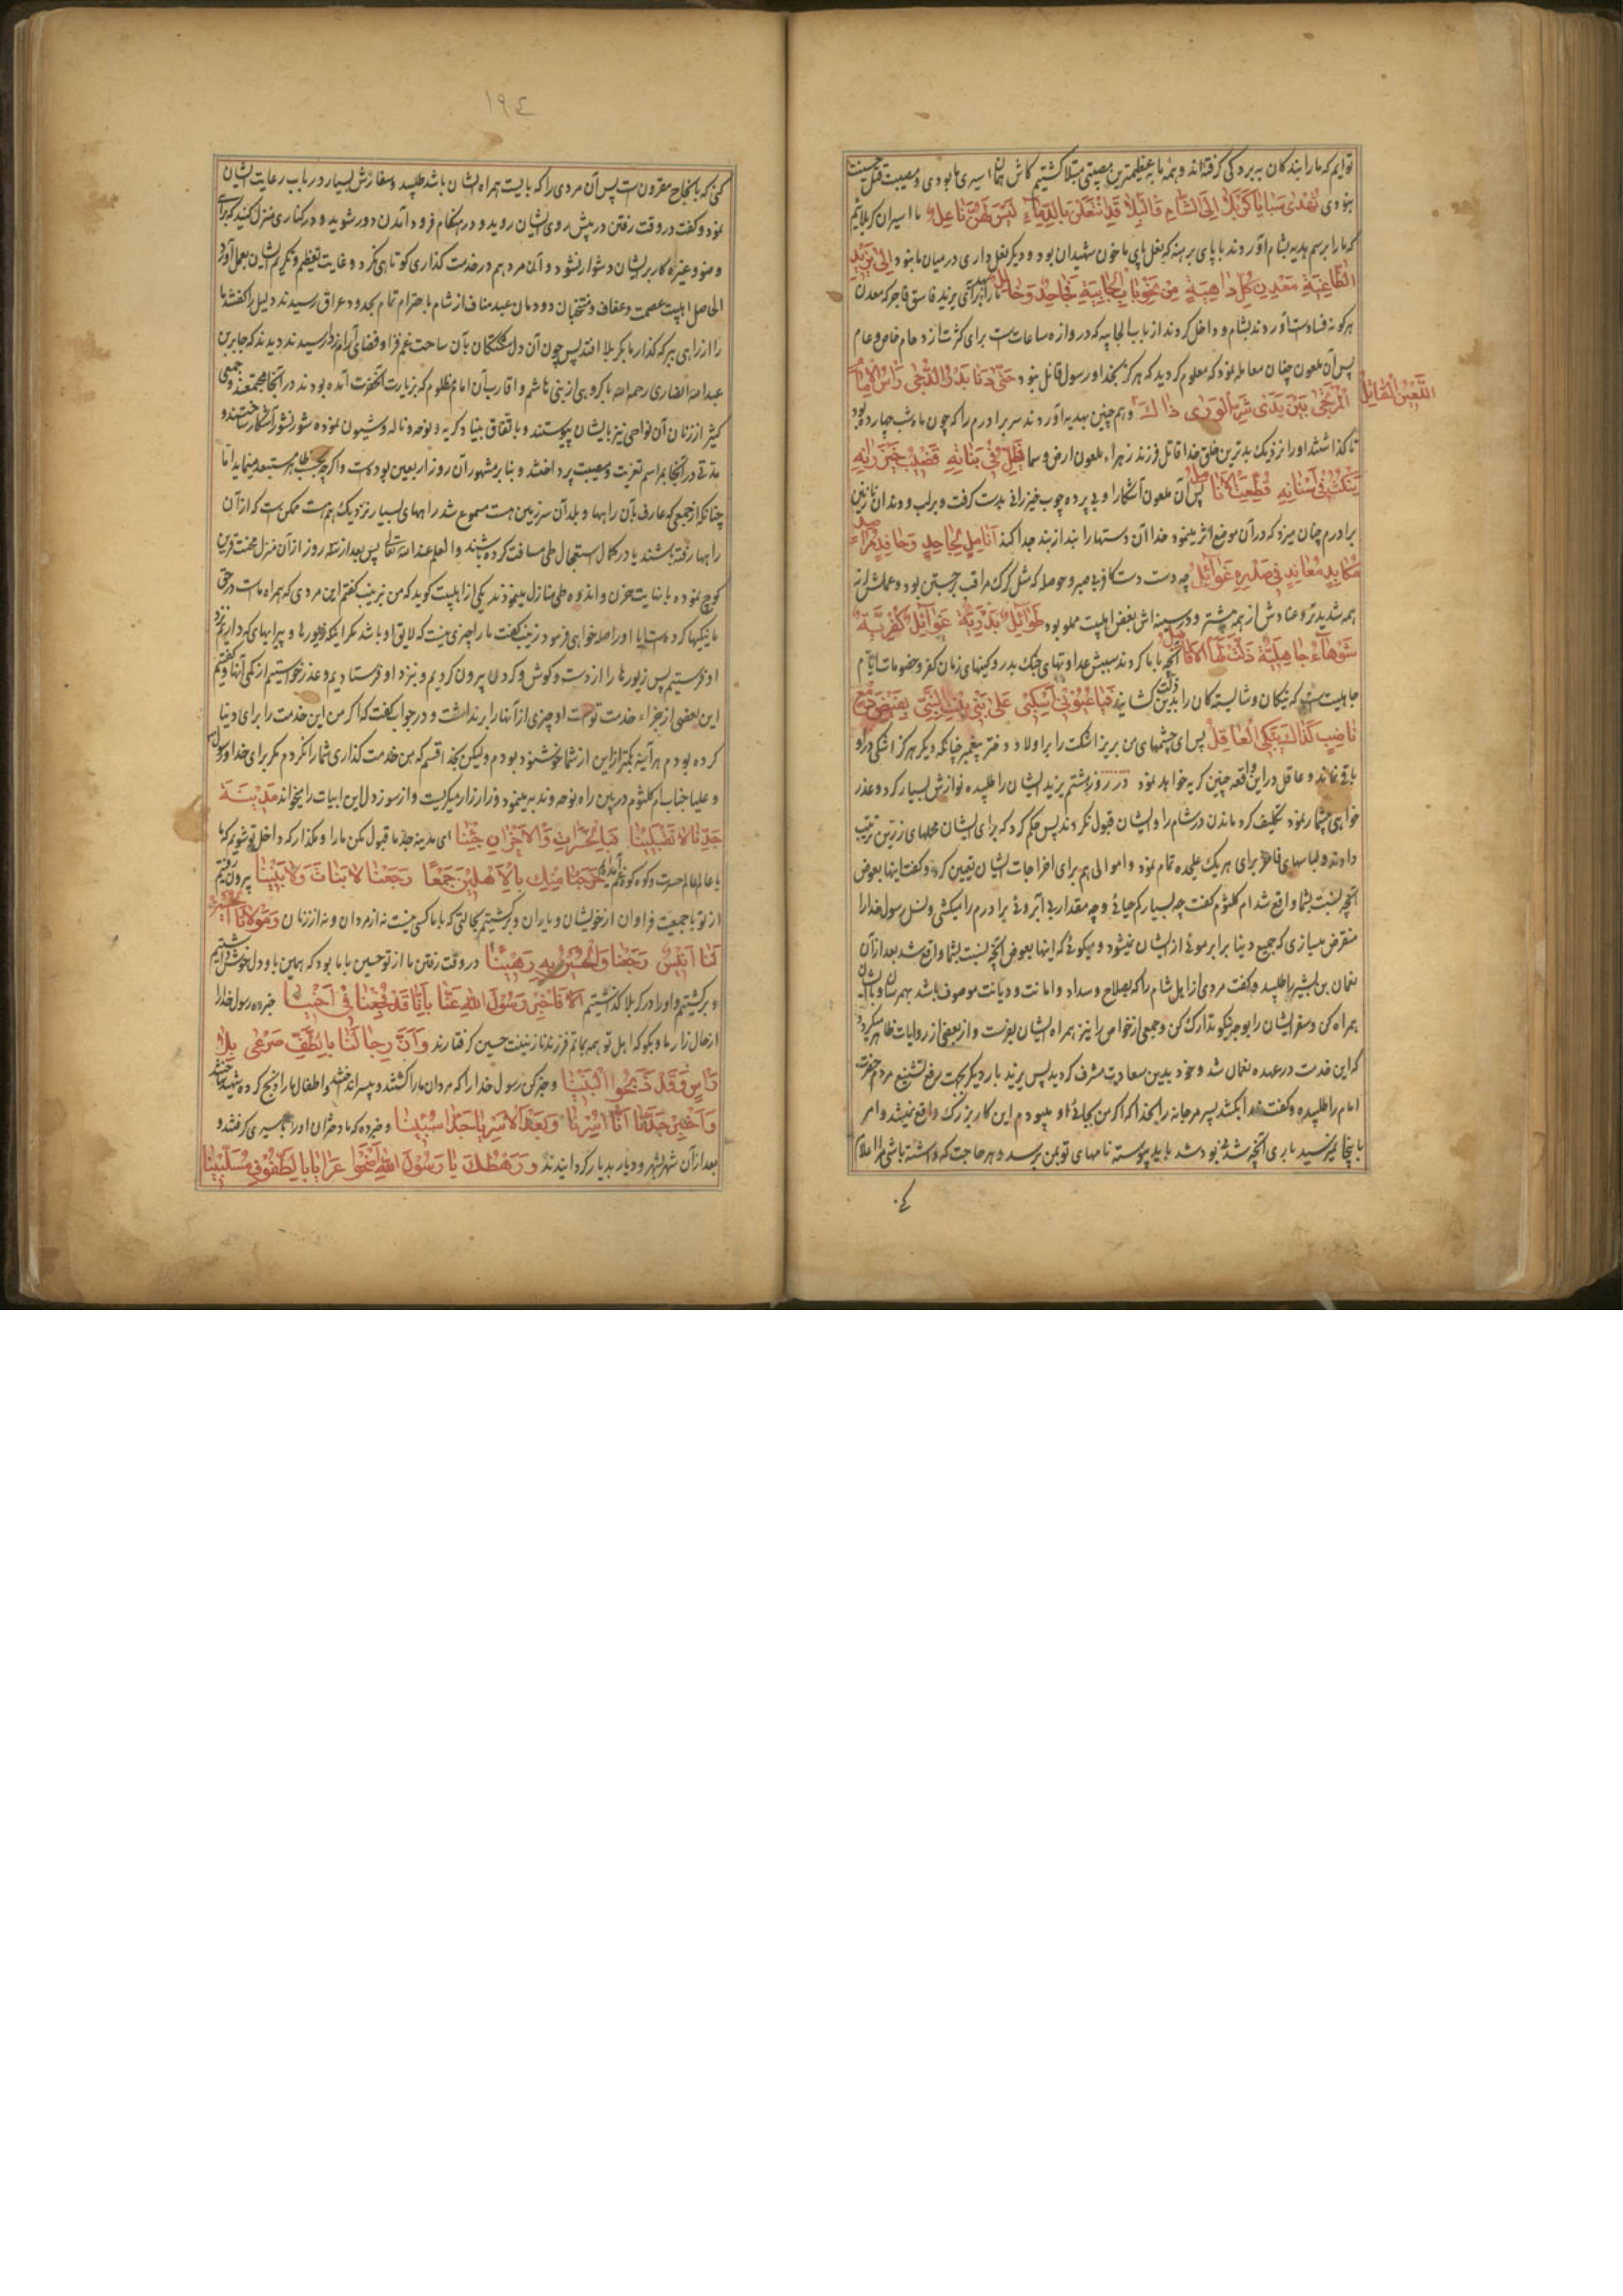 توایم که ما را بندگان به بردگی گرفته‌اند و همه ما به عظیمترین مصیبتی مبتلا گشتیم کاش همان اسیری ما بودی و مصیبت قتل حسینت
نبودی تُهْدٰی سَبٰایٰا کَرْبَلٰا اِلَی الشّٰامِ فَالْبَلٰا قَدِ انْتَعَلْنَ بِالدِّمٰاءِ لَیْسَ لَهُنَّ نٰاعِلُ ما اسیران کربلائیم
که ما را برسم هدیه بشام آوردند با پای برهنه که نعل پای ما خون شهیدان بود و دیگر نعل داری در میان ما نبود اِلیٰ یَزیدِ
الطّٰاغِیَةِ مَعْدِنِ کُلِّ دٰاهِیَةٍ مِنْ نَحْوِ بٰابِ الْجٰابِیَةِ فَجٰاحِدٌ وَخٰاتِلُ ما را برای یزید فاسق فاجر که معدن
هر گونه فساد است آوردند بشام و داخل کردند از باب الجابیه که دروازه ساعات است برای کثرت ازدحام خاص و عام
پس آن ملعون چنان معامله نمود که معلوم گردید که هرگز بخدا و رسول قائل نبود حَتّیٰ دَنٰا بَدْرُ الدُّجیٰ رَأْسُ الْاِمٰامِ
الْمُرْتَجیٰ بَیْنَ یَدَیْ شَرِّ الْوَریٰ ذٰاکَ وهم چنین بهدیه آوردند سر برادرم را که چون ماه شب چهارده بود
اللَّعینُ الْقٰاتِلُ
تا گذاشتند او را نزدیک بدترین خلق خدا قاتل فرزند زهراء ملعون ارض و سما فَظَلَّ فی بَنٰانِهِ قَضیبُ خَیْزُرٰانِهِ
یَنْکُتُ فی اَسْنٰانِهِ قُطِّعَتِ الْاَنٰامِلُ پس آن ملعون آشکارا و بی پرده چوب خیزرانی بدست گرفت و بر لب و دندان نازنین
برادرم چنان میزد که در آن موضع اثر مینمود خدا آن دستها را بند از بند جدا کند اَنٰامِلٌ لِجٰاحِدٍ وَحٰاقِدٍ مُرٰاصِدٍ
مُکٰابِدٍ مُعٰانِدٍ فی صَدْرِهِ غَوٰائِلُ چه دست دست کافر بیصبر و حوصله که مثل گرگ مراقب جستن بود و عملش از
همه شدیدتر و عنادش از همه بیشتر و در سینه‌اش بغض اهلبیت مملو بود طَوٰائِلٌ بَدْرِیَّةٌ غَوٰائِلٌ کُفْرِیَّةٌ
شَوْهٰاءُ جٰاهِلِیَّةٌ ذَلَّتْ لَهَا الْاَفٰاضِلُ آنچه با ما کردند سببش عداوتهای جنگ بدر و کینهای زمان کفر و خصومات ایام
جاهلیت بود که نیکان و شایسته‌کان را بدین ذلت کشانید فَیٰا عُیُونی اُسْکُبی عَلیٰ بَنی بِنْتِ النَّبِیِّ بِفَیْضِ دَمْعٍ
نٰاضِبٍ کَذٰاکَ یَبْکِی الْعٰاقِلُ پس ای چشمهای من بریز اشکت را بر اولاد دختر پیغمبر چنانکه دیگر هرگز اشکی در او
باقی نماند و عاقل در این واقعه چنین گریه خواهد نمود در روز هشتم یزید ایشان را طلبیده نوازش بسیار کرد و عذر
خواهی بیشمار نمود تکلیف کرد ماندن در شام را و ایشان قبول نکردند پس حکم کرد که برای ایشان محملهای زرین ترتیب
دادند و لباسهای فاخر برای هر یک علیحده تمام نمود و اموالی هم برای اخراجات ایشان تعیین کرد و گفت اینها بعوض
آنچه نسبت بشما واقع شد ام کلثوم گفت چه بسیار کم حیائی و چه مقدار بی آبروئی برادرم را میکشی و نسل رسول خدا را
منقرض میسازی که جمیع دنیا برابر موئی از ایشان نمیشود و میگوئی که اینها بعوض آنچه نسبت بشما واقع شد بعد از آن
نعمان بن بشیر را طلبید و گفت مردی از اهل شام را که بصلاح و سداد و امانت و دیانت موصوف باشد بهم رسان و با ایشان
همراه کن و سفر ایشان را بوجه نیکو تدارک کن و جمعی از خواص را نیز همراه ایشان بفرست و از بعضی از روایات ظاهر میگردد
که این خدمت در عهده نعمان شد و خود بدین سعادت مشرف گردید پس یزید بار دیگر بجهت رفع تشنیع مردم حضرت
امام را طلبیده و گفت خدا بکشد پسر مرجانه را بخدا که اگر من بجای او میبودم این کار بزرگ واقع نمیشد و امر
باینجا نمیرسید باری آنچه شدنی بود شد باید پیوسته نامهای تو بمن برسد و هر حاجت که داشته باشی مرا اعلام
۱۹٤
کنی که بانجاح مقرون است پس آن مردی را که بایست همراه ایشان باشد طلبید و سفارش بسیار در باب رعایت ایشان
نمود و گفت در وقت رفتن در پیش روی ایشان روید و در هنگام فرود آمدن دور شوید و در کناری منزل کنید که برای
وضو و غیره کار بر ایشان دشوار نشود و آن مرد هم در خدمت گذاری کوتاهی نکرد و غایت تعظیم و تکریم ایشان بعمل آورد
الحاصل اهلبیت عصمت و عفاف و منتخبان دودمان عبد مناف از شام باحترام تمام بحدود عراق رسیدند دلیل را گفتند ما
را از راهی ببر که گذار ما بکربلا افتد پس چون آن دل شکستگان بآن ساحت غم فزا و فضای رسیدند دیدند که جابر بن
عبد الله انصاری رحمه الله با گروهی از بنی هاشم و اقارب آن امام مظلوم که بزیارت آنحضرت آمده بودند در آنجا مجتمعند و جمعی
کثیر از زنان آن نواحی نیز بایشان پیوستند و باتفاق بنیاد گریه و نوحه و ناله و شیون نموده شور نشور آشکار ساختند و
مدتی در آنجا بمراسم تعزیت و مصیبت پرداختند و بنا بر مشهور آن روز اربعین بوده است و اگرچه بحسب ظاهر مستبعد مینماید اما
چنانکه از جمعی که عارف بآن راهها و بلد آن سرزمین است مسموع شد راههای بسیار نزدیک هم هست ممکن است که از آن
راهها رفته باشند یا در کمال استعجال طی مسافت کرده باشند و العلم عند الله تعالی پس بعد از سه روز از آن منزل محنت قرین
کوچ نموده با نهایت حزن و اندوه طی منازل مینمودند یکی از اهلبیت گوید که من بزینب گفتم این مردی که همراه ماست در حق
ما نیکیها کرده است آیا او را صله خواهی فرمود زینب گفت ما را چیزی نیست که لایق او باشد مگر اینکه زیورها و پیرایهای که داریم نزد
او فرستیم پس زیورها را از دست و گوش و گردن بیرون کردیم و بنزد او فرستادیم و عذر خواستیم از کمی آنها و گفتیم
این بعضی از جزاء خدمت تو است او چیزی از آنها را برنداشت و در جواب گفت که اگر من این خدمت را برای دنیا
کرده بودم هر آینه بکمتر از این از شما خوشنود بودم ولیکن بخدا قسم که من خدمت گذاری شما را نکردم مگر برای خدا و رسول
و علیا جناب ام کلثوم در بین راه نوحه و ندبه مینمود و زار زار میگریست و از سوز دل این ابیات را میخواند مَدینَةَ
جَدِّنٰا لٰا تَقْبَلینٰا فَبِالْحَسَرٰاتِ وَالْاَحْزٰانِ جِئْنٰا ای مدینه جد ما قبول مکن ما را و مگذار که داخل تو شویم که ما
با عالم عالم حسرت و کوه کوه غم آمدیم خَرَجْنٰا مِنْکِ بِالْاَهْلینَ جَمْعًا رَجَعْنٰا لٰا بَنٰاتَ وَلٰا بَنینٰا بیرون رفتیم
از تو با جمعیت فراوان از خویشان و یاران و برگشتیم بحالتی که با ما کسی نیست نه از مردان و نه از زنان وَمَوْلٰانَا الْحُسَیْنُ
لَنٰا اَنیسٌ رَجَعْنٰا وَالْحُسَیْنُ بِهِ رَهینٰا در وقت رفتن ما از تو حسین با ما بود که همین با او دل خوش داشتیم
و برگشتیم و او را در کربلا گذاشتیم اَلٰا فَاَخْبِرْ رَسُولَ اللهِ عَنّٰا بِاَنّٰا قَدْ فُجِعْنٰا فی اَخینٰا خبر ده رسول خدا را
از حال زار ما و بگو که اهل تو همه بماتم فرزند نازنینت حسین گرفتارند وَاَنَّ رِجٰالَنٰا بِالطَّفِّ صَرْعیٰ بِلٰا
رَأْسٍ وَقَدْ ذَبَحُوا الْبَنینٰا و خبر کن رسول خدا را که مردان ما را کشتند و بیسر انداختند و اطفال ما را ذبح کرده شهید ساختند
وَاَخْبِرْ جَدَّنٰا اَنّٰا اُسِرْنٰا وَبَعْدَ الْاَسْرِ یٰا جَدّٰا سُبینٰا و خبر ده که ما دختران او را باسیری گرفتند و
بعد از آن شهر بشهر و دیار بدیار گردانیدند وَرَهْطُکَ یٰا رَسُولَ اللهِ اَضْحَوْا عَرٰایٰا بِالطُّفُوفِ مُسَلَّبینٰا